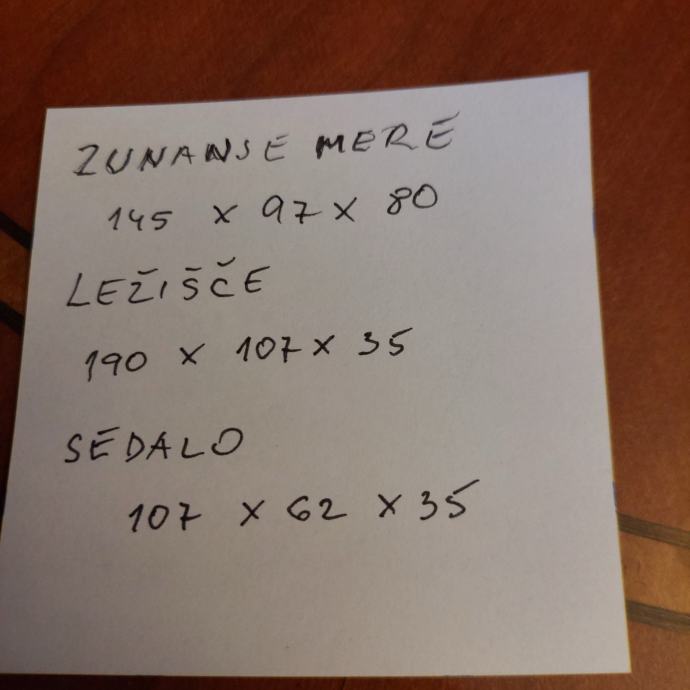 ZUNANSE MERE
145 x 97 x 80
LEŽIŠČE
190 x 107 x 35
SEDALO
107 x 62 x 35